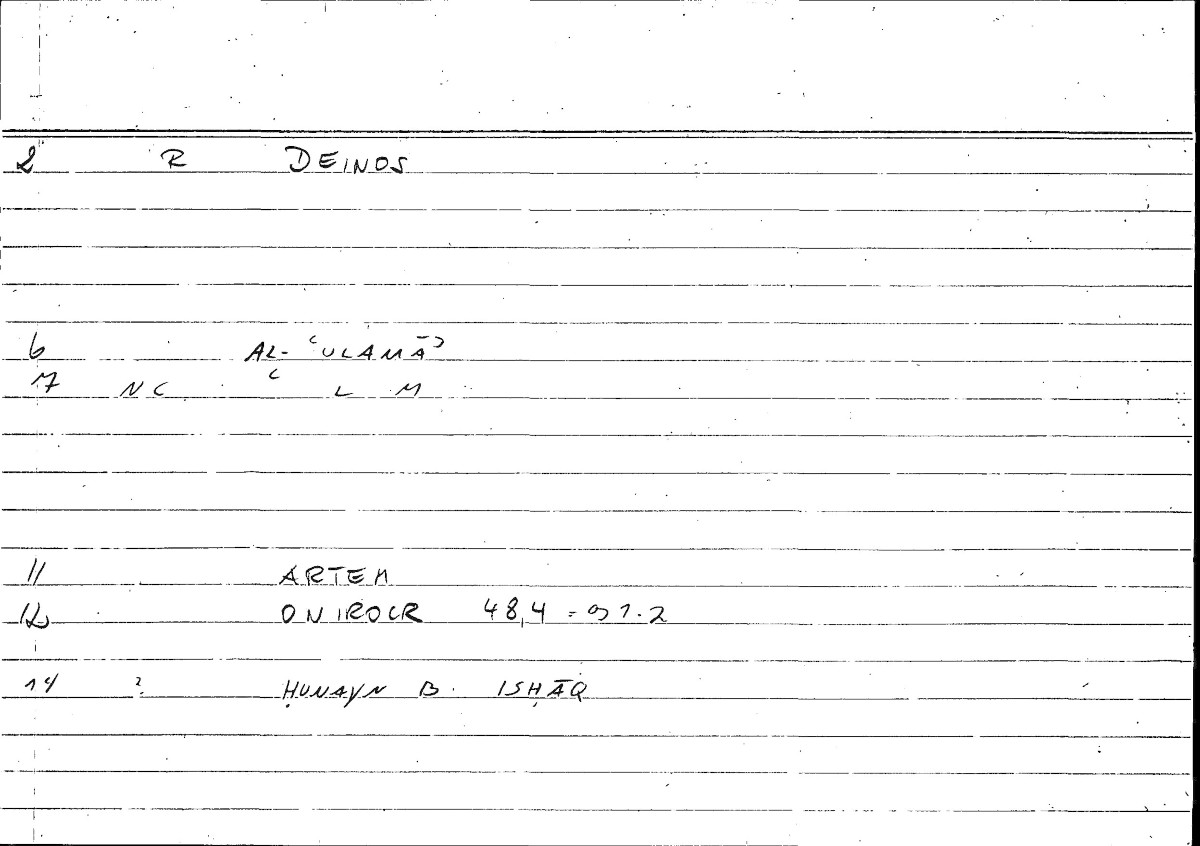 2 R DEINOS
6 AL-ʿULAMĀʾ
7 NC ʿ L M
11 ARTEM
12 ONIROCR 48,4 = 91.2
14 ? ḤUNAYN B. ISḤĀQ